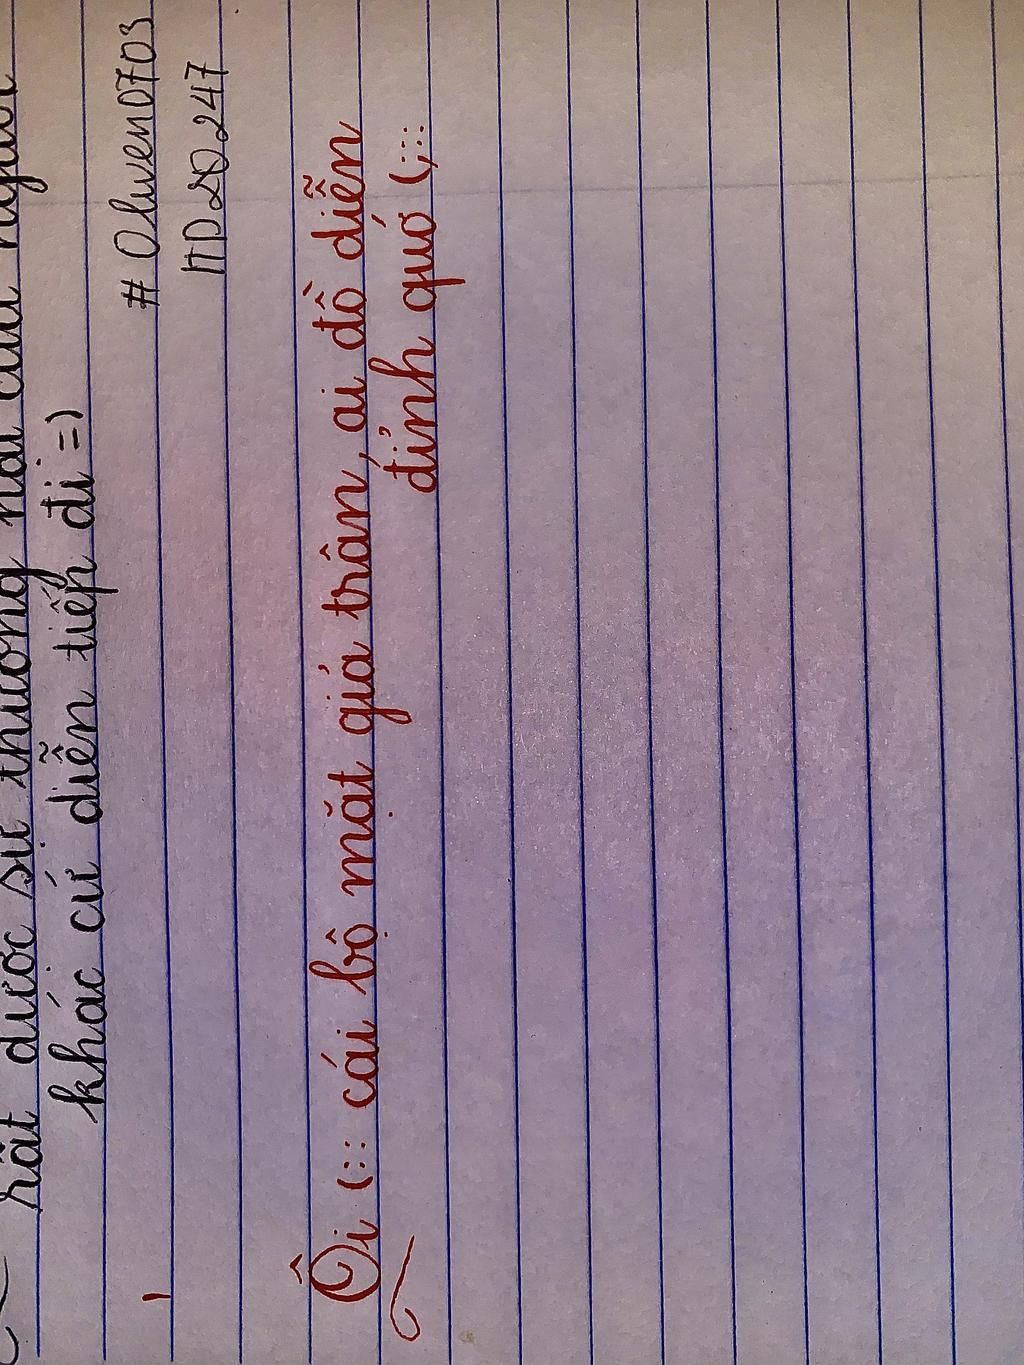 rất được sự thương hại của người
khác cứ diễn tiếp đi =)
# Oliven0703
Ôi (::: cái bộ mặt giả trân, ai đồ diễn
đỉnh quớ (;:::